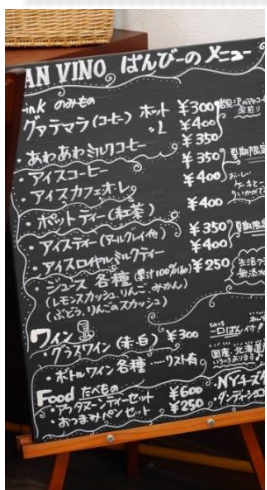 AN VINO ぱんびーの メニュー
ink のみもの
グァテマラ(コーヒー) ホット ¥300
〃 L ¥400
・あわあわミルクコーヒー ¥350
・アイスコーヒー ¥350 夏期限定
・アイスカフェオ・レ ¥400
・ポットティー(紅茶) ¥400
・アイスティー ¥350 夏期限定
・アイスロイヤルミルクティー ¥400
・ジュース 各種(果汁100%) ¥250
(レモンスカッシュ.りんご.みかん)
(ぶどう.りんごのスカッシュ)
ワイン
・グラスワイン(赤・白) ¥300 一口ぱん付!
・ボトルワイン各種 ‥‥リスト有
国産.北海道
Food たべもの
・アフタヌーンティーセット ¥600
・おつまみパンセット ¥250
・NYチーズ
・ダンディ